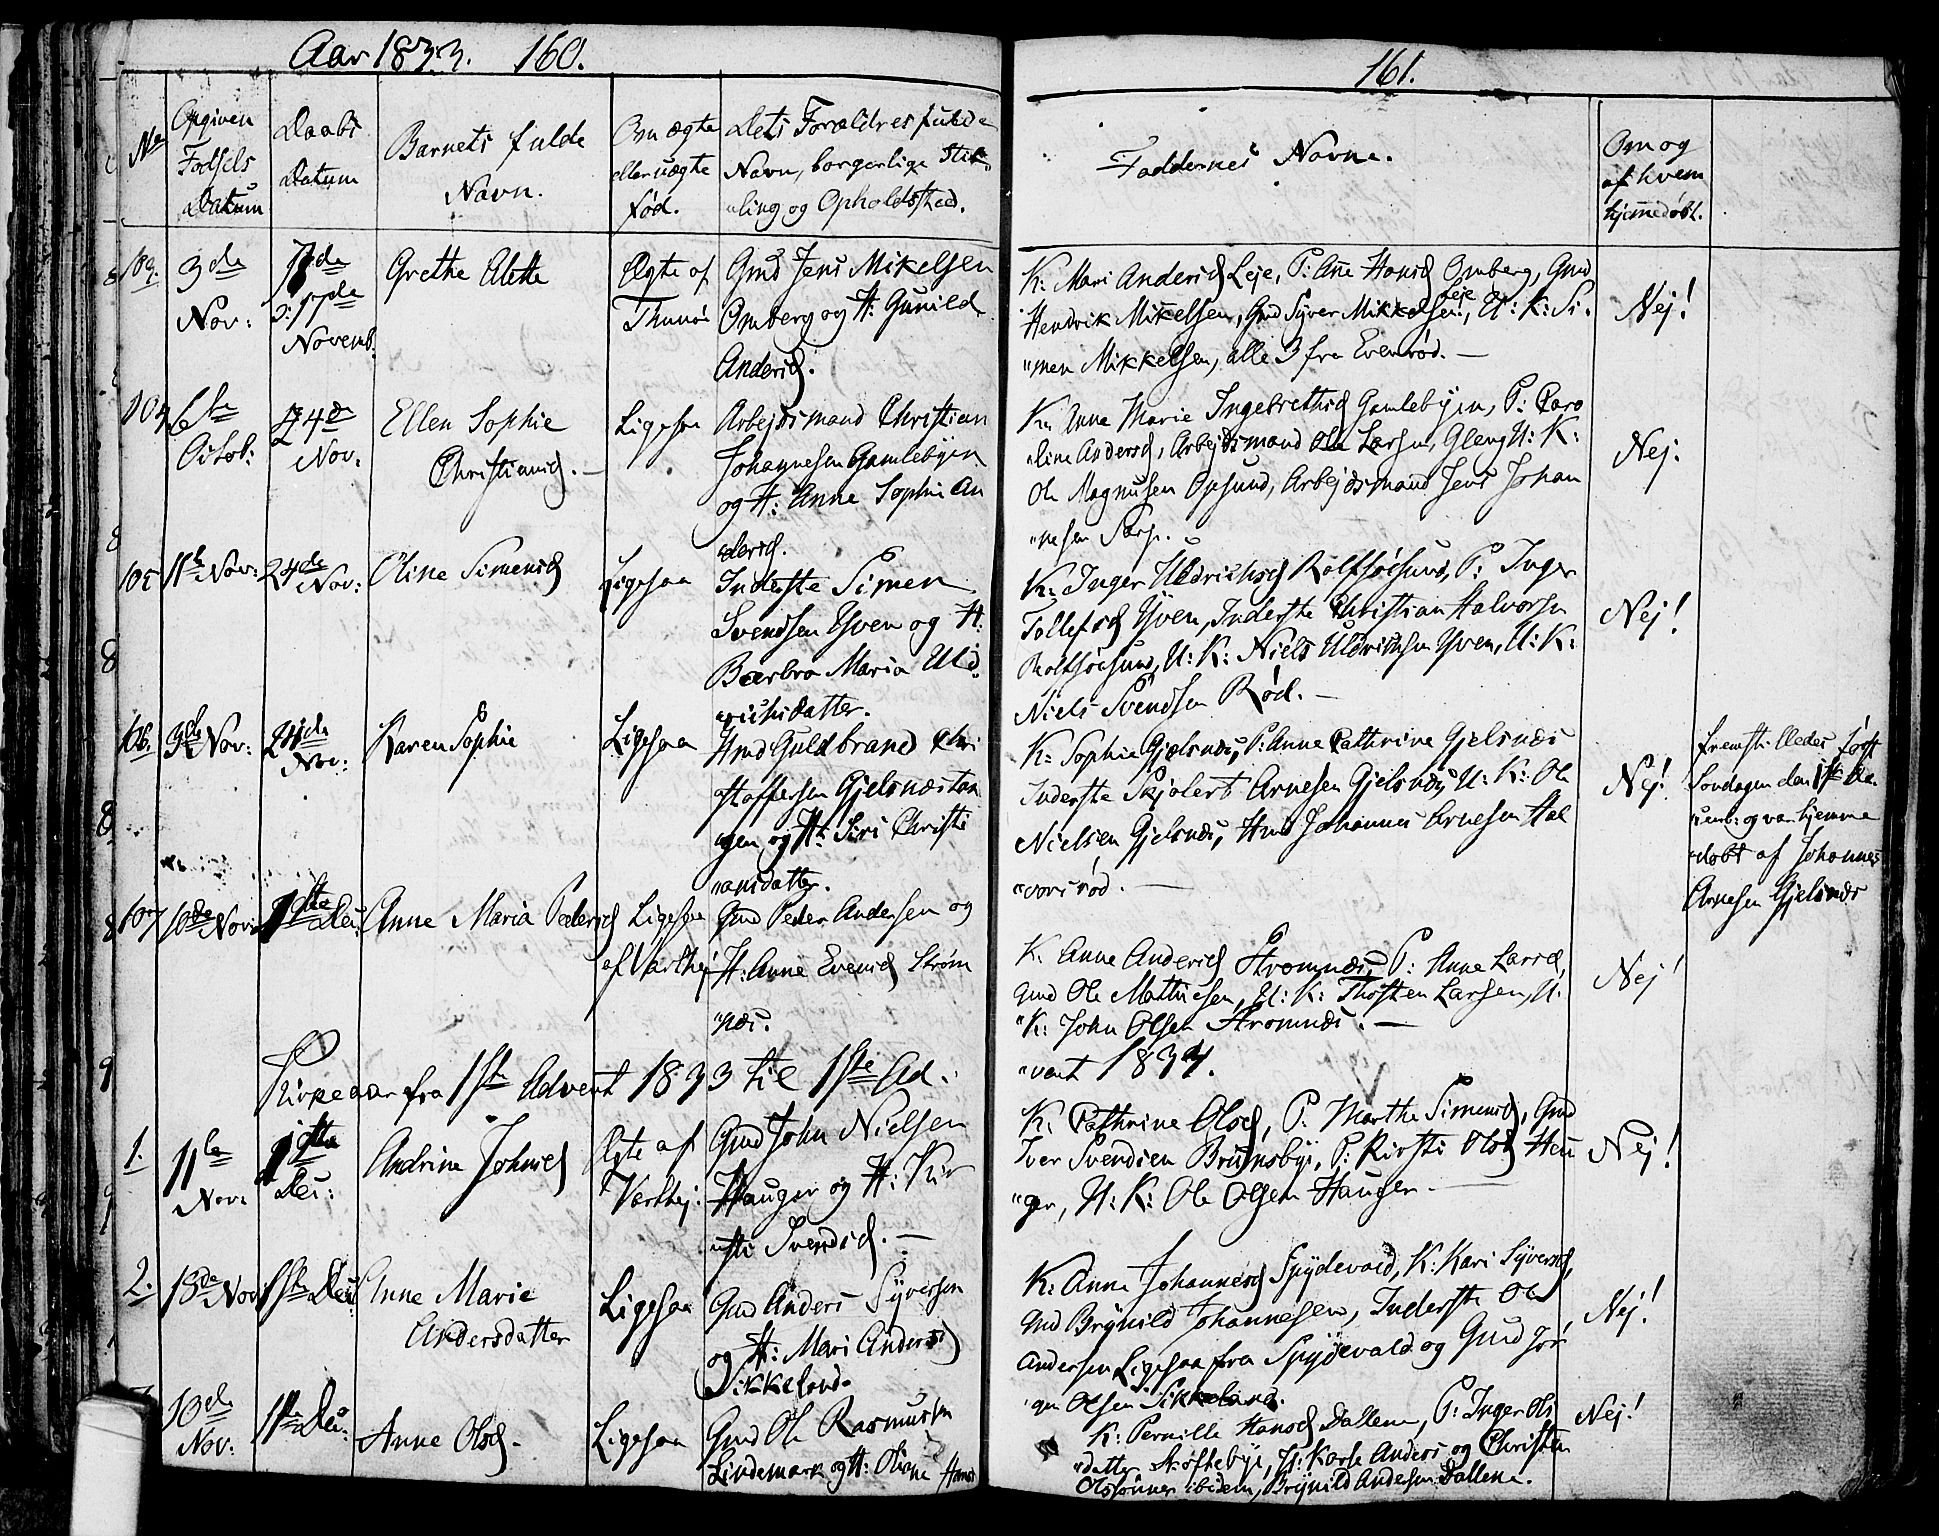 Aar 1833. 160.
No
Opgiven
Fødsels
Datum
Daabs
Datum
Barnets fulde
Navn.
Om ægte
eller uægte
fød.
Dets Forældres fulde
Navn, borgerlige Stil-
"ling og Opholdsted.
109.
3de
Nov:
17de
Novemb.
Grethe Alette
Ægte af
Gmd Jens Mikelsen
Omberg og H: Gunild
Andersd.
104
6te
Octob:
24de
Nov.
Ellen Sophie
Christiansd. —
Ligesaa
Arbejdsmand Christian
Johannesen Gamlebyen
og H: Anne Sophie An
"dersd.
105
11te Nov:
24de Nov:
Oline Simensd
Ligesaa
Inderste Simen
Svendsen Yven og H:
Barbro Maria Uld-
"richsdatter.
106.
Nov:
24de
Nov:
Karen Sophie
Ligesaa
Hmd Guldbrand Chri
"stoffersen Gjelsnæstan
"gen og H: Siri Christi
"ansdatter.
107
10de Nov:
1ste Dec:
Anne Maria Pedersd
Ligesaa
Gmd Peder Andersen og
H: Anne Evensd Strøm
"næs.
Kirkeaar fra 1ste Advent 1833 til 1ste Ad-
1.
11te
Nov:
1ste
Dec:
Andrine Johnsd
Ægte af
Gmd John Nielsen
Hauger og H: Kir
"sti Svendsd. —
2.
13de Nov
1ste Dec
Anne Marie
Andersdatter
Ligesaa
Gmd Anders Syversen
og H: Mari Andersd
Sikkeland.
10de
Nov:
1ste Dec:
Anne Olsd.
Ligesaa
Gmd Ole Rasmussen
Lindemark og H: Oline Hansd
161.
Faddernes Navne.
Om og
af hvem
hjemedøbt.
K: Mari Andersd Leje, P: Ane Hansd Omberg, Gmd
Hendrik Mikelsen, Gmd Syver Mikkelsen, Leje U: K: Si-
"men Mikkelsen, alle 3 fra Evenrød. —
Nej!
K: Anne Marie Ingebrethsd Gamlebyen, P: Caro
"line Andersd, Arbejdsmand Ole Larsen, Gleng U: K:
Ole Magnusen Opsund, Arbejdsmand Jens Johan
"nesen Sarp.
Nej.
K: Inger Uldrichsd Rolfsøesund, P: Inger
Tollefsd Yven, Inderste Christian Halvorsen
Rolfsøesund, U: K: Niels Uldrichsen Yven, U: K:
Niels Svendsen Rød. —
Nej!
K: Sophie Gjelsnæs, P: Anne Cathrine Gjelsnæs
Inderste Arnesen Gjelsnæs, U: K: Ole
Nielsen Gjelsnæs, Hmd Johannes Arnesen Hal
"vorsrød. —
Nej!
fremstilledes først
Søndagen den 1ste De-
"cemb: og var hjemme
"døbt af Johannes
Arnesen Gjelsnæs
K: Anne Andersd Strømnæs, P: Anne Larsd,
Gmd Ole Mathiesen, U: K: Thosten Larsen, U:
"K: John Olsen Strømnæs. —
Nej!
"vent 1834.
K: Cathrine Olsd, P: Marthe Simensd, Gmd
Iver Svendsen Brunsbye, P: Kirsti Olsd Hau
"ger, U: K: Ole Olsen Hauger —
Nej!
K: Anne Johannesd Spydevold, K: Kari Syversd,
Gmd Brynild Johannesen, Inderste Ole
Andersen Ligesaa fra Spydevold og Gmd Jør
"gen Olsen Sikkeland.
Nej!
K: Pernille Hansd Dallene, P: Inger Ols
"datter Skoftebye, U: Karle Anders og Christen
Olssønner ibidem, Brynild Andersen Dallene.
Nej!